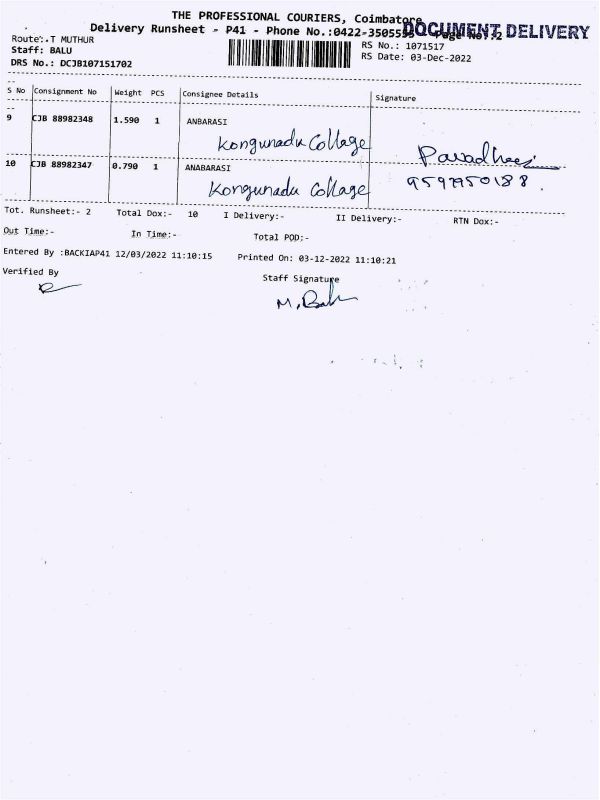 THE PROFESSIONAL COURIERS, Coimbatore
Delivery Runsheet - P41 - Phone No.:0422-350555 Page No.:2
DOCUMENT DELIVERY
Route:-T MUTHUR
Staff: BALU
DRS No.: DCJB107151702
RS No.: 1071517
RS Date: 03-Dec-2022
S No Consignment No Weight PCS Consignee Details Signature
9 CJB 88982348 1.590 1 ANBARASI
Kongunadu Collage
10 CJB 88982347 0.790 1 ANABARASI
Kongunadu Collage
Tot. Runsheet:- 2 Total Dox:- 10 I Delivery:- II Delivery:- RTN Dox:-
Out Time:- In Time:- Total POD:-
Entered By :BACKIAP41 12/03/2022 11:10:15 Printed On: 03-12-2022 11:10:21
Verified By Staff Signature
M. Balu